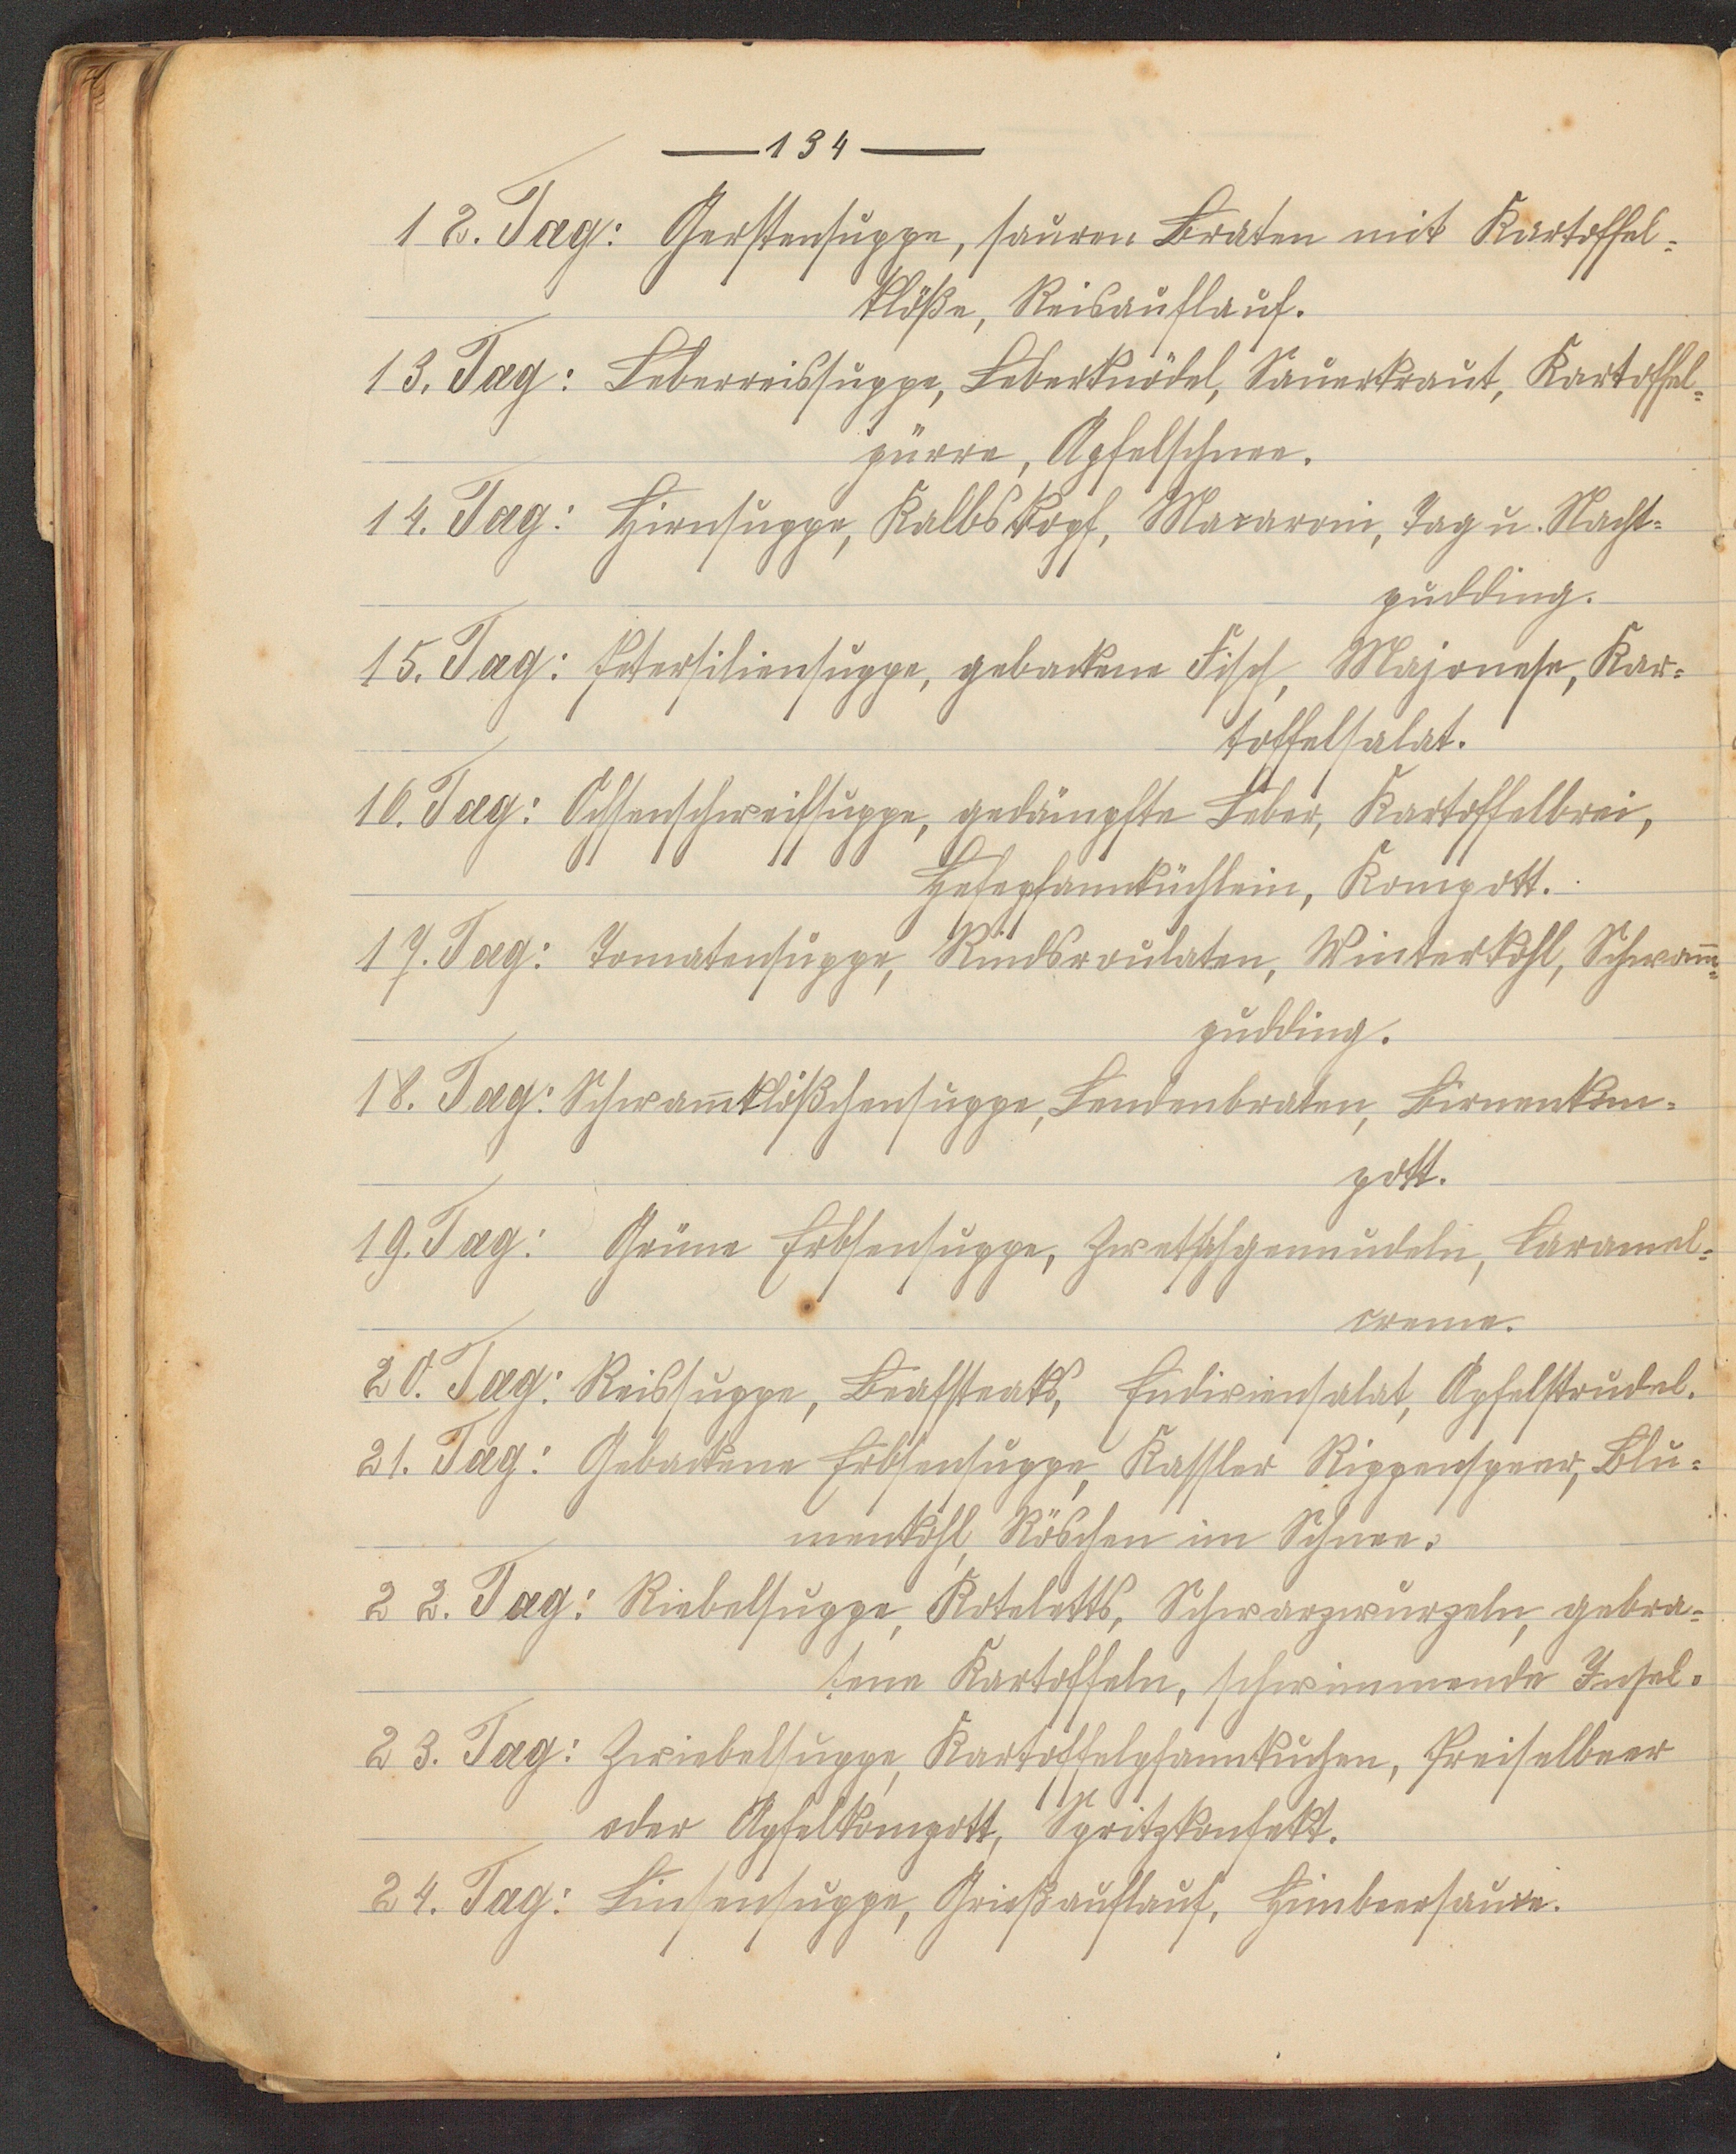 — 134 —
12. Tag: Gerstensuppe, sauren Braten mit Kartoffel-
klöße, Reisauflauf.
13. Tag: Leberreissuppe, Leberknödel, Sauerkraut, Kartoffel-
pürre, Apfelschnee.
14. Tag: Hirnsuppe, Kalbskopf, Macaroni, Tag u. Nacht-
pudding.
15. Tag: Petersiliensuppe, gebackene Fisch, Majonese, Kar-
toffelsalat.
16. Tag: Ochsenschweifsuppe, gedämpfte Leber, Kartoffelbrei,
Hefepfannküchlein, Kompott.
17. Tag: Tomatensuppe, Rindsroulaten, Winterkohl, Schwam̅-
pudding.
18. Tag: Schwam̅klößchensuppe, Lendenbraten, Birnenkom-
pott.
19. Tag: Grüne Erbsensuppe, Zwetschgennudeln, Caramel-
creme.
20. Tag: Reissuppe, Beafsteaks, Endiviensalat, Apfelstrudel.
21. Tag: Gebackene Erbsensuppe, Kassler Rippenspeer, Blu-
menkohl, Röschen im Schnee.
22. Tag: Riebelsuppe, Koteletts, Schwarzwurzeln, gebra-
tene Kartoffeln, schwimmende Insel.
23. Tag: Zwiebelsuppe, Kartoffelpfannkuchen, Preiselbeer
oder Apfelkompott, Spritzkonfekt.
24. Tag: Linsensuppe, Grießauflauf, Himbeersauce.